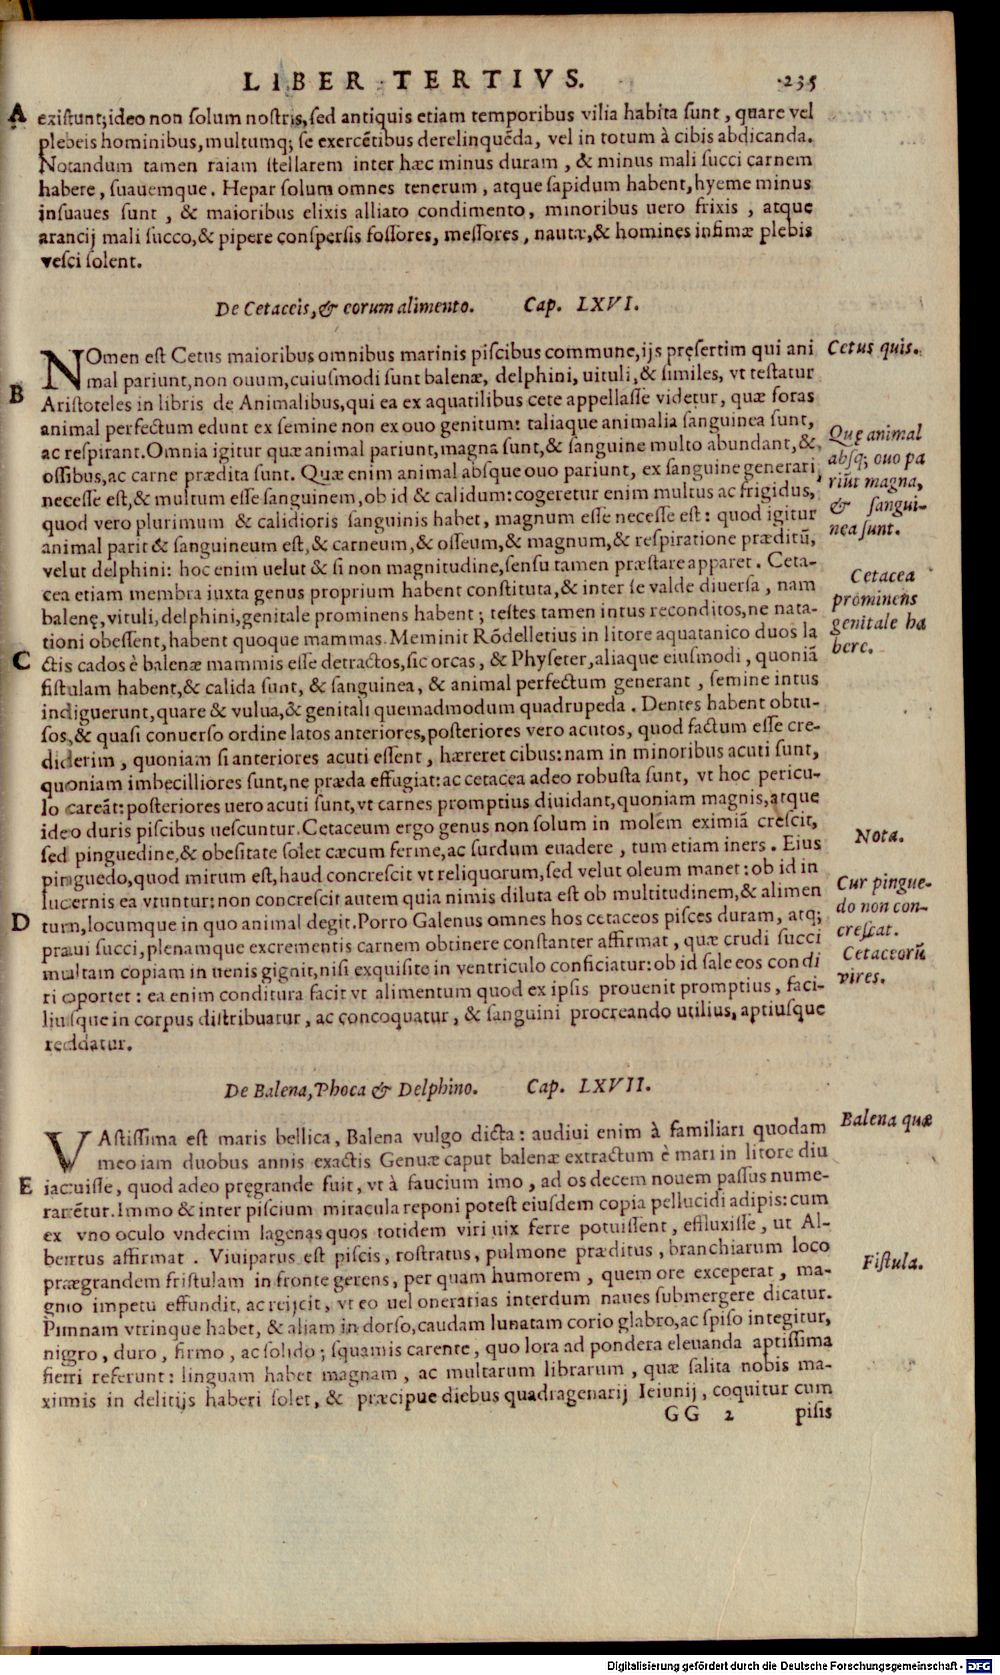 LIBER TERTIVS. 235
A
existunt; ideo non solum nostris, sed antiquis etiam temporibus vilia habita sunt, quare vel
plebeis hominibus, multumq; se exercẽtibus derelinquẽda, vel in totum à cibis abdicanda.
Notandum tamen raiam stellarem inter hæc minus duram, & minus mali succi carnem
habere, suauemque. Hepar solum omnes tenerum, atque sapidum habent, hyeme minus
insuaues sunt, & maioribus elixis alliato condimento, minoribus uero frixis, atque
arancij mali succo, & pipere conspersis fossores, messores, nautæ, & homines infimæ plebis
vesci solent.
De Cetaceis, & eorum alimento. Cap. LXVI.
NOmen est Cetus maioribus omnibus marinis piscibus commune, ijs pręsertim qui ani
Cetus quis.
mal pariunt, non ouum, cuiusmodi sunt balenæ, delphini, uituli, & similes, vt testatur
B
Aristoteles in libris de Animalibus, qui ea ex aquatilibus cete appellasse videtur, quæ foras
animal perfectum edunt ex semine non ex ouo genitum: taliaque animalia sanguinea sunt,
ac respirant. Omnia igitur quæ animal pariunt, magna sunt, & sanguine multo abundant, &
ossibus, ac carne prædita sunt. Quæ enim animal absque ouo pariunt, ex sanguine generari
necesse est, & multum esse sanguinem, ob id & calidum: cogeretur enim multus ac frigidus,
quod vero plurimum & calidioris sanguinis habet, magnum esse necesse est: quod igitur
animal parit & sanguineum est, & carneum, & osseum, & magnum, & respiratione præditũ,
Quę animal
absq; ouo pa
riũt magna,
& sangui-
nea sunt.
velut delphini: hoc enim uelut & si non magnitudine, sensu tamen præstare apparet. Ceta-
cea etiam membra iuxta genus proprium habent constituta, & inter se valde diuersa, nam
balenę, vituli, delphini, genitale prominens habent; testes tamen intus reconditos, ne nata-
tioni obessent, habent quoque mammas. Meminit Rõdelletius in litore aquatanico duos la
Cetacea
prominens
genitale ha
bere.
C
ctis cados è balenæ mammis esse detractos, sic orcas, & Physeter, aliaque eiusmodi, quoniã
fistulam habent, & calida sunt, & sanguinea, & animal perfectum generant, semine intus
indiguerunt, quare & vulua, & genitali quemadmodum quadrupeda. Dentes habent obtu-
sos, & quasi conuerso ordine latos anteriores, posteriores vero acutos, quod factum esse cre-
diderim, quoniam si anteriores acuti essent, hæreret cibus: nam in minoribus acuti sunt,
quoniam imbecilliores sunt, ne præda effugiat: ac cetacea adeo robusta sunt, vt hoc pericu-
lo careãt: posteriores uero acuti sunt, vt carnes promptius diuidant, quoniam magnis, atque
ideo duris piscibus uescuntur. Cetaceum ergo genus non solum in molem eximiã crescit,
Nota.
sed pinguedine, & obesitate solet cæcum ferme, ac surdum euadere, tum etiam iners. Eius
pinguedo, quod mirum est, haud concrescit vt reliquorum, sed velut oleum manet: ob id in
lucernis ea vtuntur: non concrescit autem quia nimis diluta est ob multitudinem, & alimen
Cur pingue-
do non con-
crescat.
D
tum, locumque in quo animal degit. Porro Galenus omnes hos cetaceos pisces duram, atq;
praui succi, plenamque excrementis carnem obtinere constanter affirmat, quæ crudi succi
multam copiam in uenis gignit, nisi exquisite in ventriculo conficiatur: ob id sale eos condi
Cetaceorũ
vires.
ri oportet: ea enim conditura facit vt alimentum quod ex ipsis prouenit promptius, faci-
liusque in corpus distribuatur, ac concoquatur, & sanguini procreando utilius, aptiusque
reddatur.
De Balena, Phoca & Delphino. Cap. LXVII.
VAstissima est maris bellica, Balena vulgo dicta: audiui enim à familiari quodam
Balena quæ
meo iam duobus annis exactis Genuæ caput balenæ extractum è mari in litore diu
E
iacuisse, quod adeo pręgrande fuit, vt à faucium imo, ad os decem nouem passus nume-
rarẽtur. Immo & inter piscium miracula reponi potest eiusdem copia pellucidi adipis: cum
ex vno oculo vndecim lagenas quos totidem viri uix ferre potuissent, effluxisse, ut Al-
bertus affirmat. Viuiparus est piscis, rostratus, pulmone præditus, branchiarum loco
prægrandem fristulam in fronte gerens, per quam humorem, quem ore exceperat, ma-
Fistula.
gno impetu effundit, ac reijcit, vt eo uel onerarias interdum naues submergere dicatur.
Pinnam vtrinque habet, & aliam in dorso, caudam lunatam corio glabro, ac spiso integitur,
nigro, duro, firmo, ac solido; squamis carente, quo lora ad pondera eleuanda aptissima
fieri referunt: linguam habet magnam, ac multarum librarum, quæ salita nobis ma-
ximis in delitijs haberi solet, & præcipue diebus quadragenarij Ieiunij, coquitur cum
GG 2 pisis
Digitalisierung gefördert durch die Deutsche Forschungsgemeinschaft - DFG